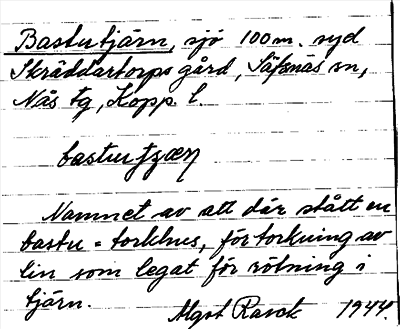 Bastutjärn, sjö 100 m. syd
Skräddartorps gård, Säfsnäs sn,
Näs tg, Kopp l.
Namnet av att där stått en
bastu = torkhus, för torkning av
lin som legat för rötning i
tjärn.
Algot 1944.